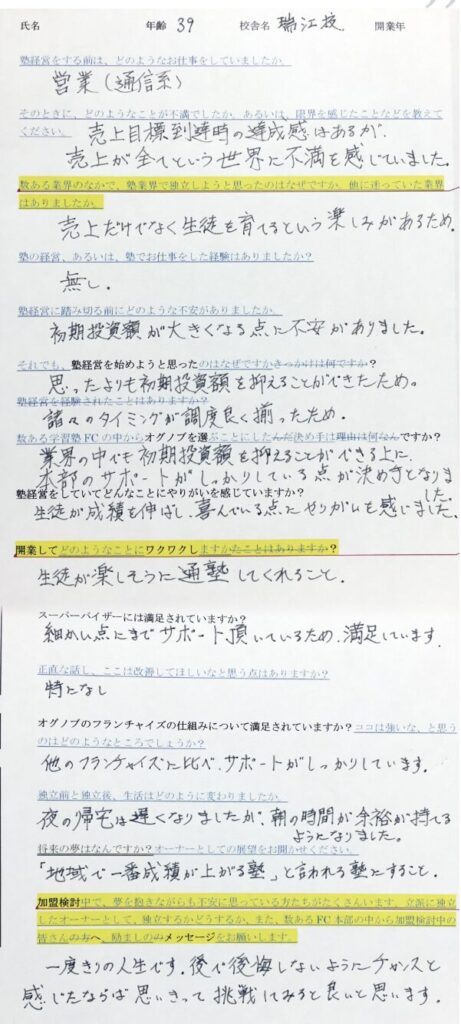 氏名 年齢 39 校舎名 瑞江校 開業年
塾経営をする前は、どのようなお仕事をしていましたか。
営業(通信系)
そのときに、どのようなことが不満でしたか。あるいは、限界を感じたことなどを教えて
ください。 売上目標到達時の達成感はあるが、
売上が全てという世界に不満を感じていました。
数ある業界のなかで、塾業界で独立しようと思ったのはなぜですか。他に迷っていた業界
はありましたか。
売上だけでなく生徒を育てるという楽しみがあるため。
塾の経営、あるいは、塾でお仕事をした経験はありましたか?
無し。
塾経営に踏み切る前にどのような不安がありましたか。
初期投資額が大きくなる点に不安がありました。
それでも、塾経営を始めようと思ったのはなぜですかきっかけは何ですか?
思ったよりも初期投資額を抑えることができたため。
塾経営を経験されたことはありますか?
諸々のタイミングが調度良く揃ったため。
数ある学習塾FCの中からオグノブを選ぶことにしたんだ決め手は理由は何なんですか?
業界の中でも初期投資額を抑えることができる上に、
本部のサポートがしっかりしている点が決め手となりま
した。
塾経営をしていてどんなことにやりがいを感じていますか?
生徒が成績を伸ばし、喜んでいる点にやりがいを感じました。
開業してどのようなことにワクワクしますかたことはありますか?
生徒が楽しそうに通塾してくれること。
スーパーバイザーには満足されていますか?
細かい点にまでサポート頂いているため、満足しています。
正直な話し、ここは改善してほしいなと思う点はありますか?
特になし
オグノブのフランチャイズの仕組みについて満足されていますか?ココは強いな、と思う
のはどのようなところでしょうか?
他のフランチャイズに比べ、サポートがしっかりしています。
独立前と独立後、生活はどのように変わりましたか。
夜の帰宅は遅くなりましたが、朝の時間が余裕が持てる
ようになりました。
将来の夢はなんですか?オーナーとしての展望をお聞かせください。
「地域で一番成績が上がる塾」と言われる塾にすること。
加盟検討中で、夢を抱きながらも不安に思っている方がたくさんいます。立派に独立
したオーナーとして、独立するかどうするか、また、数あるFC本部の中から加盟検討中の
皆さんの方へ、励ましのメッセージをお願いします。
一度きりの人生です。後で後悔しないようにチャンスと
感じたならば思いきって挑戦してみると良いと思います。